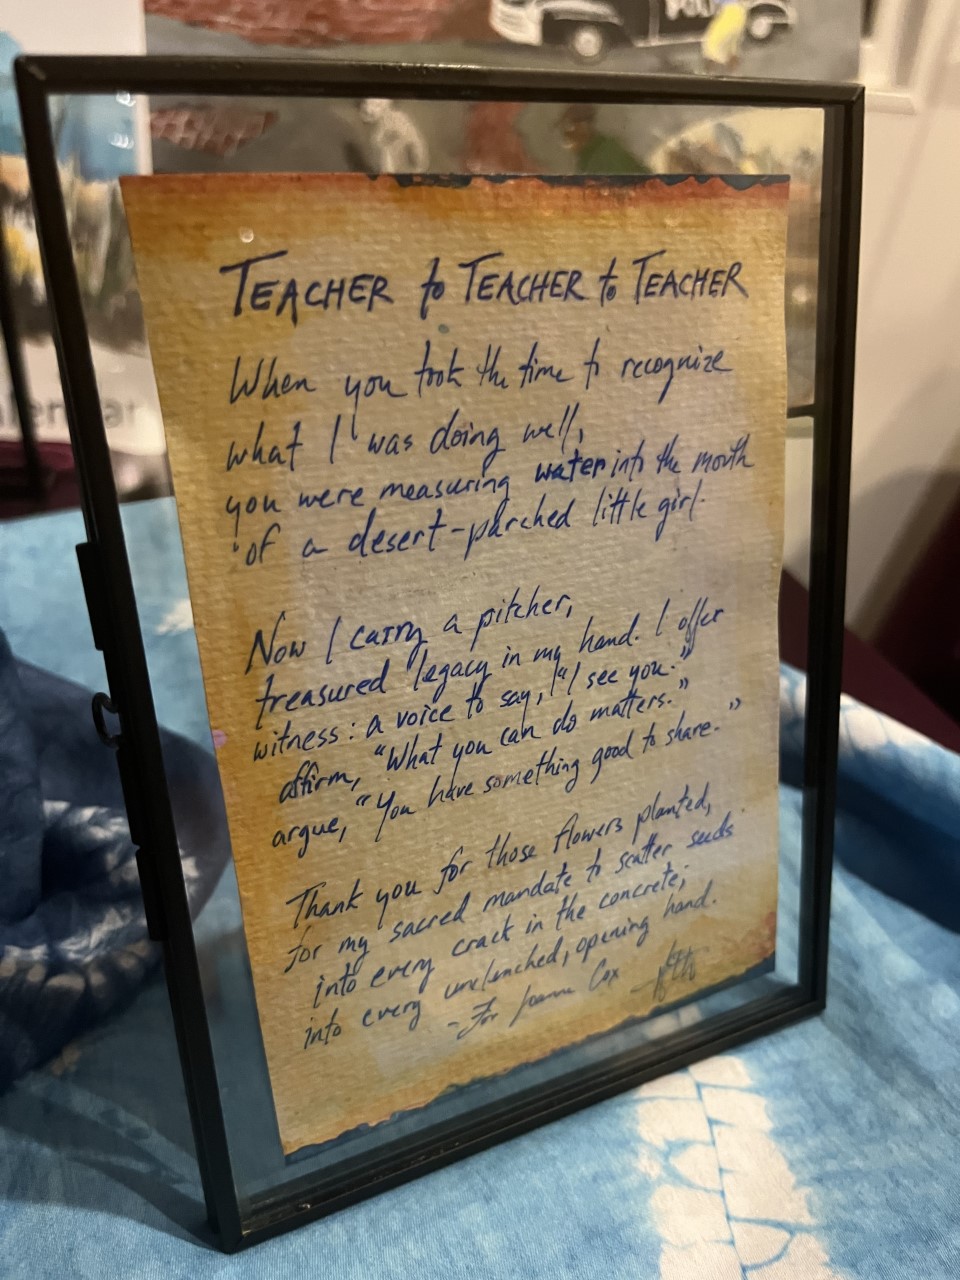 POLI
TEACHER to TEACHER to TEACHER
When you took the time to recognize
what I was doing well,
you were measuring water into the mouth
of a desert-parched little girl.
Now I carry a pitcher,
treasured legacy in my hand. I offer
witness: a voice to say, "I see you."
affirm, "What you can do matters."
argue, "You have something good to share."
Thank you for those flowers planted,
for my sacred mandate to scatter seeds
into every crack in the concrete;
into every unclenched, opening hand.
-For Joanne Cox